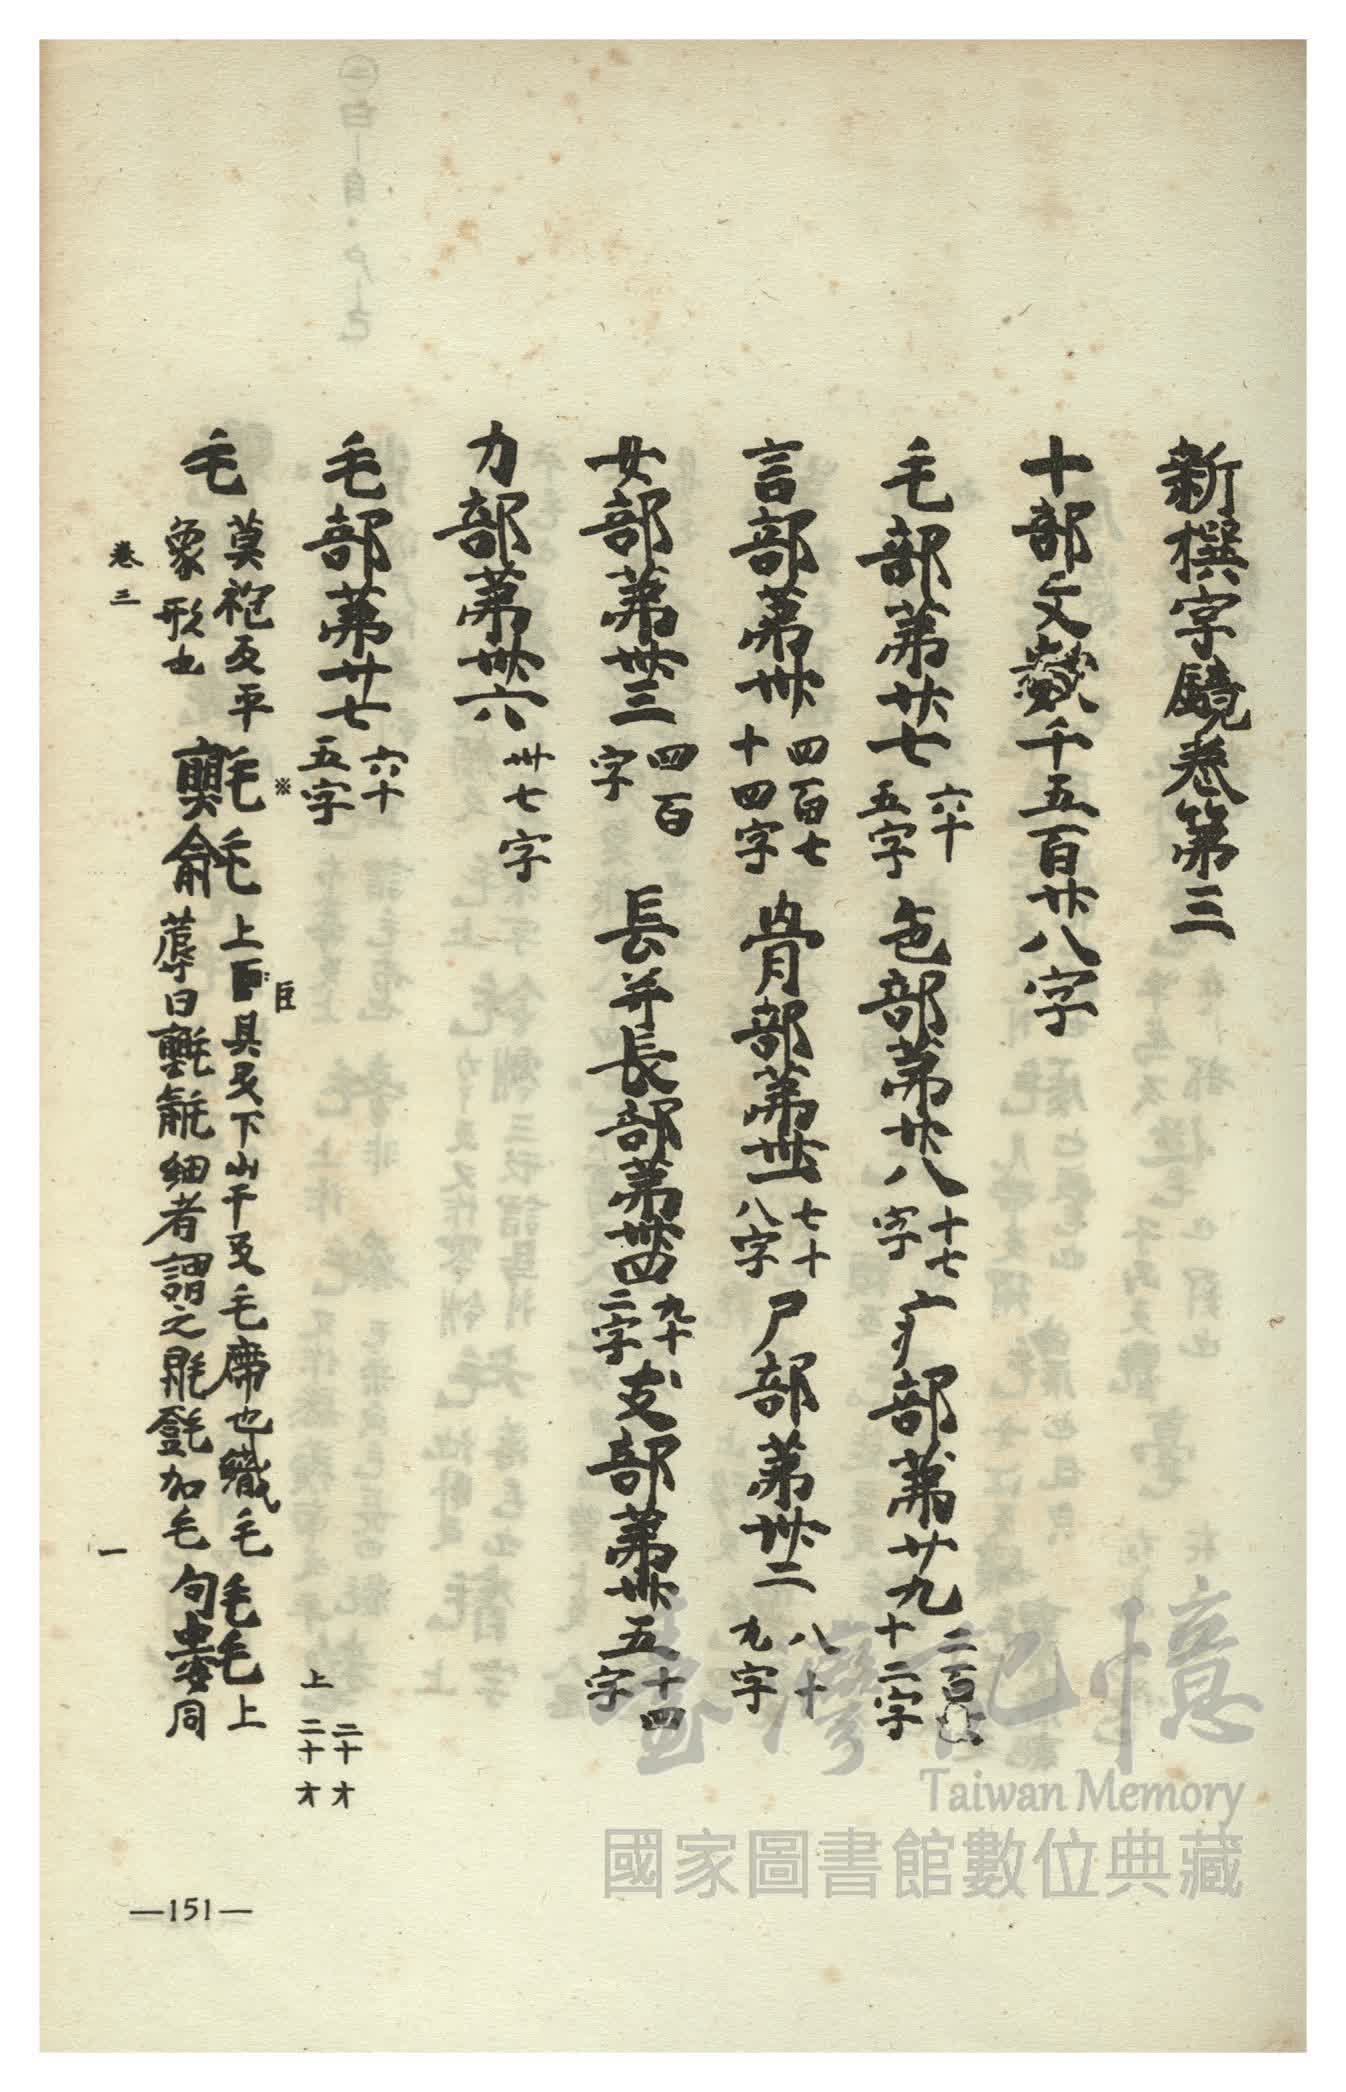 新撰字鏡卷第三
十部文數千五百廿八字
毛部第廿七 六十五字 色部第廿八 十七字 疒部第廿九 二百十二字
言部第卅 四百七十四字 骨部第卅一 七十八字 尸部第卅二 八十九字
女部第卅三 四百字 長并镸部第卅四 九十二字 支部第卅五 十四字
力部第卅六 卅七字
毛部第廿七 六十五字
毛 莫袍反平象形也 氍毹 上 具反下山于反毛席也織毛蓐曰氍毹細者謂之毾㲪加毛 上同
※
巨
上 二十オ
二十オ
卷三
一
—151—
臺灣記憶
Taiwan Memory
國家圖書館數位典藏